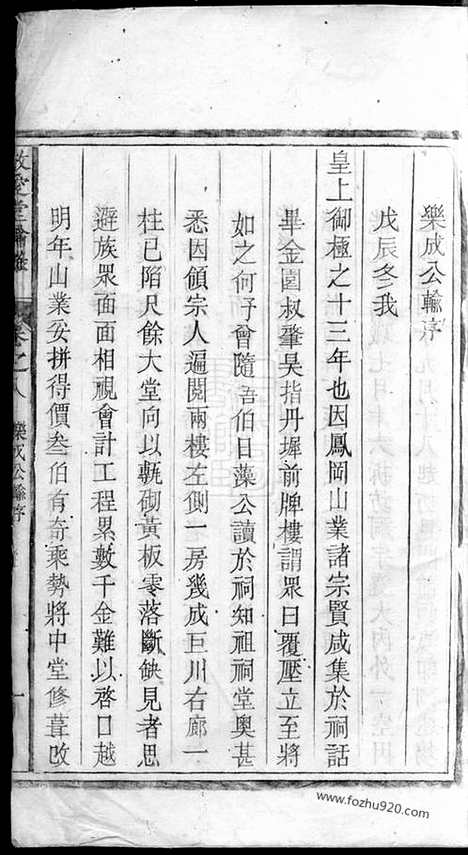 樂成公輸序
戊辰冬我
皇上御極之十三年也因鳳岡山業諸宗賢咸集於祠話
畢金園叔肇昊指丹墀前牌樓謂眾曰覆壓立至將
如之何予曾隨吾伯日藻公讀於祠知祖祠堂奧甚
悉因領宗人遍閱兩樓左側一房幾成巨川右廊一
柱已陷尺餘大堂向以甎砌黃板零落斷缺見者思
避族眾面面相視會計工程累數千金難以啓口越
明年山業安拼得價叁伯有奇乘勢將中堂修葺改
卷之八 樂成公輸序 一
www.fozhu920.com